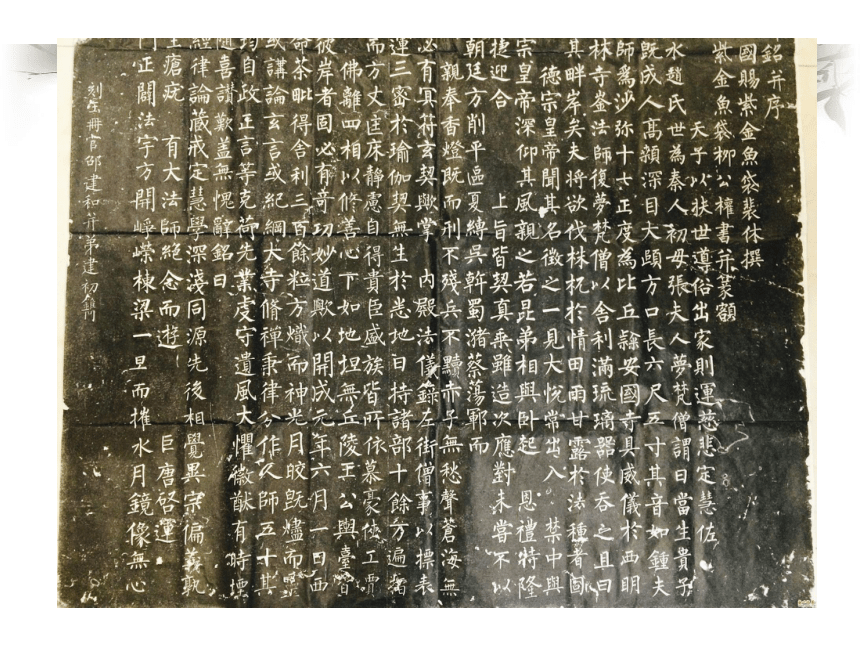 銘并序
國賜紫金魚袋裴休撰
紫金魚袋柳公權書并篆額
天子以扶世導俗出家則運慈悲定慧佐
水趙氏世為秦人初母張夫人夢梵僧謂曰當生貴子
既成人高顙深目大頤方口長六尺五寸其音如鍾夫
師為沙弥十七正度為比丘隸安國寺具威儀於西明
林寺崟法師復夢梵僧以舍利滿琉璃器使吞之且曰
其畔岸矣夫將欲伐株杌於情田雨甘露於法種者固
德宗皇帝聞其名徵之一見大悅常出入 禁中與
宗皇帝深仰其風親之若昆弟相與臥起 恩禮特隆
捷迎合 上旨皆契真乘雖造次應對未嘗不以
朝廷方削平區夏縛吳斡蜀潴蔡蕩鄆而
親奉香燈既而刑不殘兵不黷赤子無愁聲蒼海無
必有冥符玄契歟掌 內殿法儀錄左街僧事以標表
運三密於瑜伽契無生於悉地日持諸部十餘万遍指
而方丈匡床靜慮自得貴臣盛族皆所依慕豪俠工賈
佛離四相以修善心下如地坦無丘陵王公輿臺皆
彼岸者固必有奇功妙道歟以開成元年六月一日西
命荼毗得舍利三百餘粒方熾而神光月皎既燼而靈
或講論玄言或紀綱大寺脩禪秉律分作人師五十其
均自政正言等克荷先業虔守遺風大懼徽猷有時堙
隨喜讚歎蓋無愧辭銘曰
經律論藏戒定慧學深淺同源先後相覺異宗偏義孰
生瘡疣 有大法師絕念而遊 巨唐啓運
門正闢法宇方開崢嶸棟梁一旦而摧水月鏡像無心
刻玉冊官邵建和并弟建初鐫